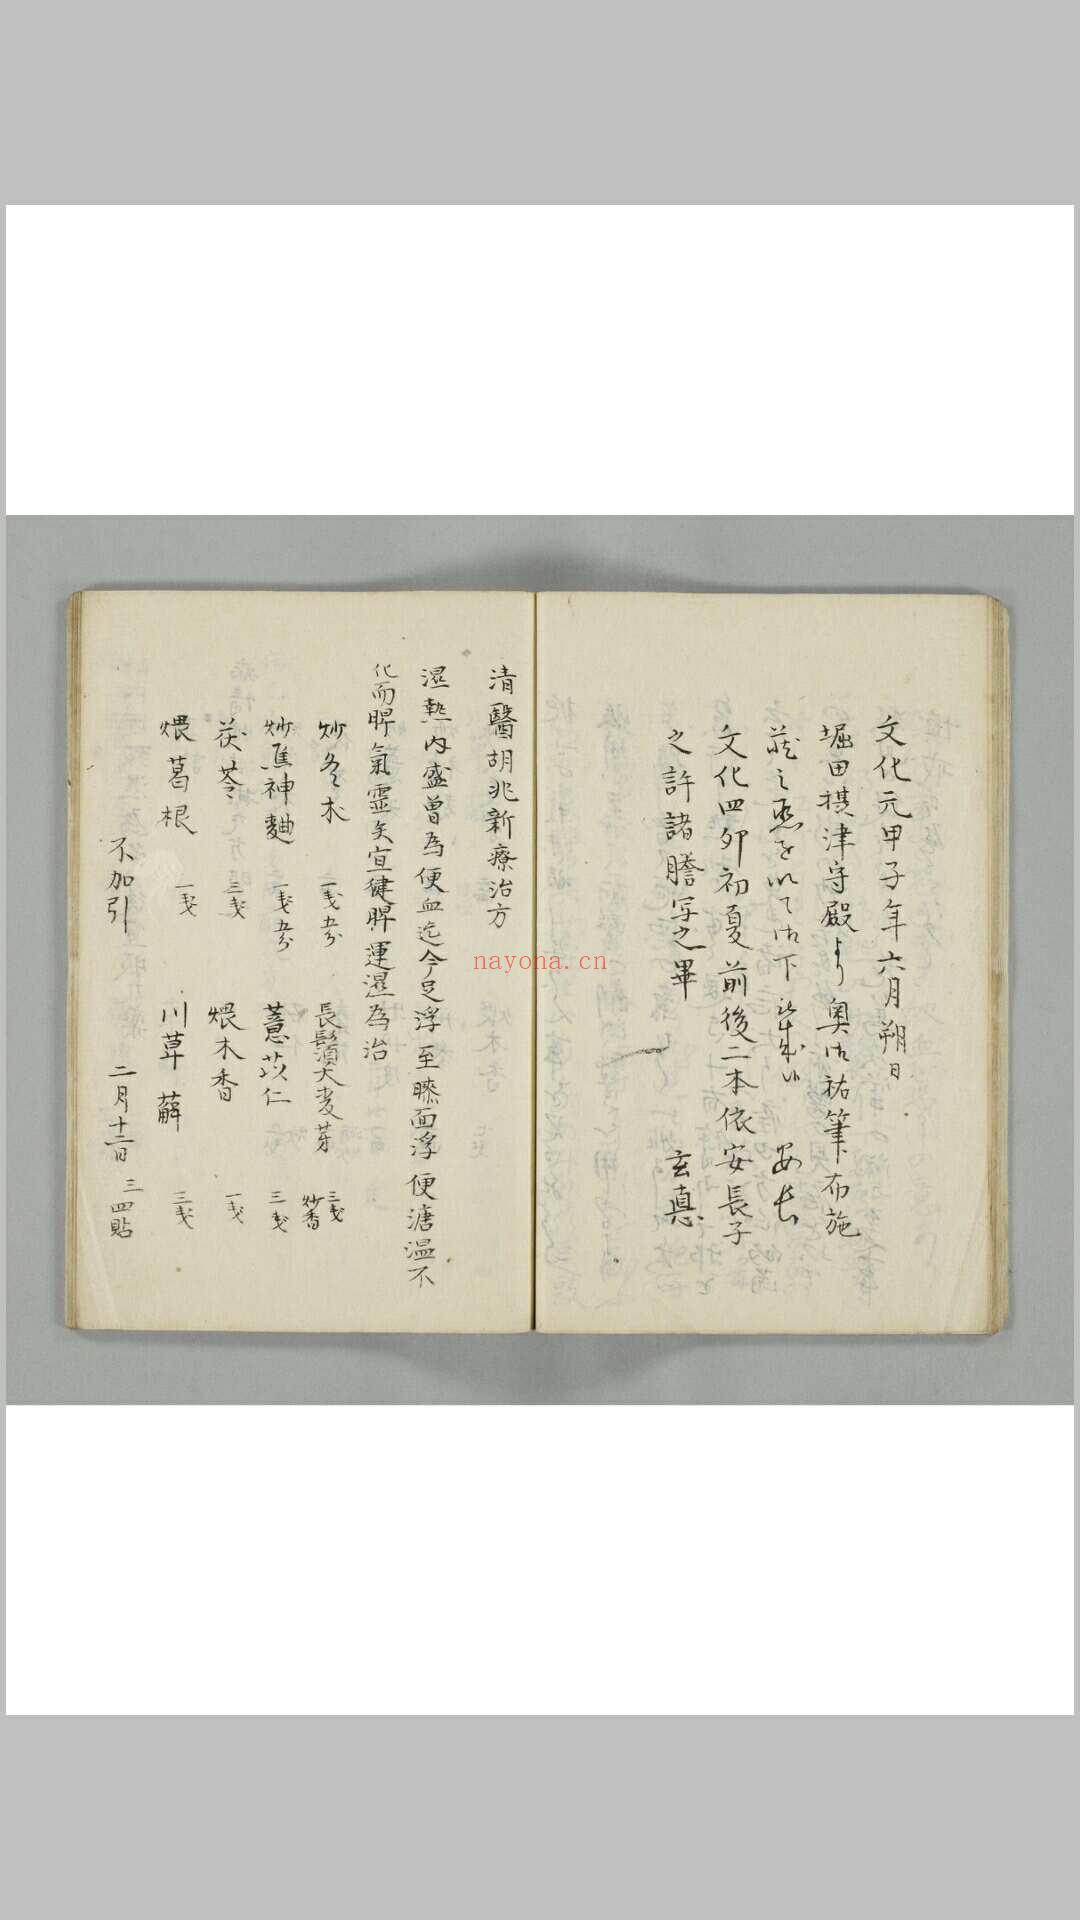 文化元甲子年六月朔日
堀田摂津守殿より奥御祐筆布施
蔵之丞を以て御下 安長
文化四卯初夏前後二本依安長子
之許諸謄写之畢 玄真
清醫胡兆新療治方
濕熱內盛曾為便血迄今足浮至膝面浮便溏温不
化而脾氣靈矣宣健脾運濕為治
炒冬朮 一戔五分 長鬚大麦芽 三戔炒香
炒焦神麯 一戔五分 薏苡仁 三戔
茯苓 三戔 煨木香 一戔
煨葛根 一戔 川萆薢 三戔
不加引 二月十二日 三四貼
nayona.cn